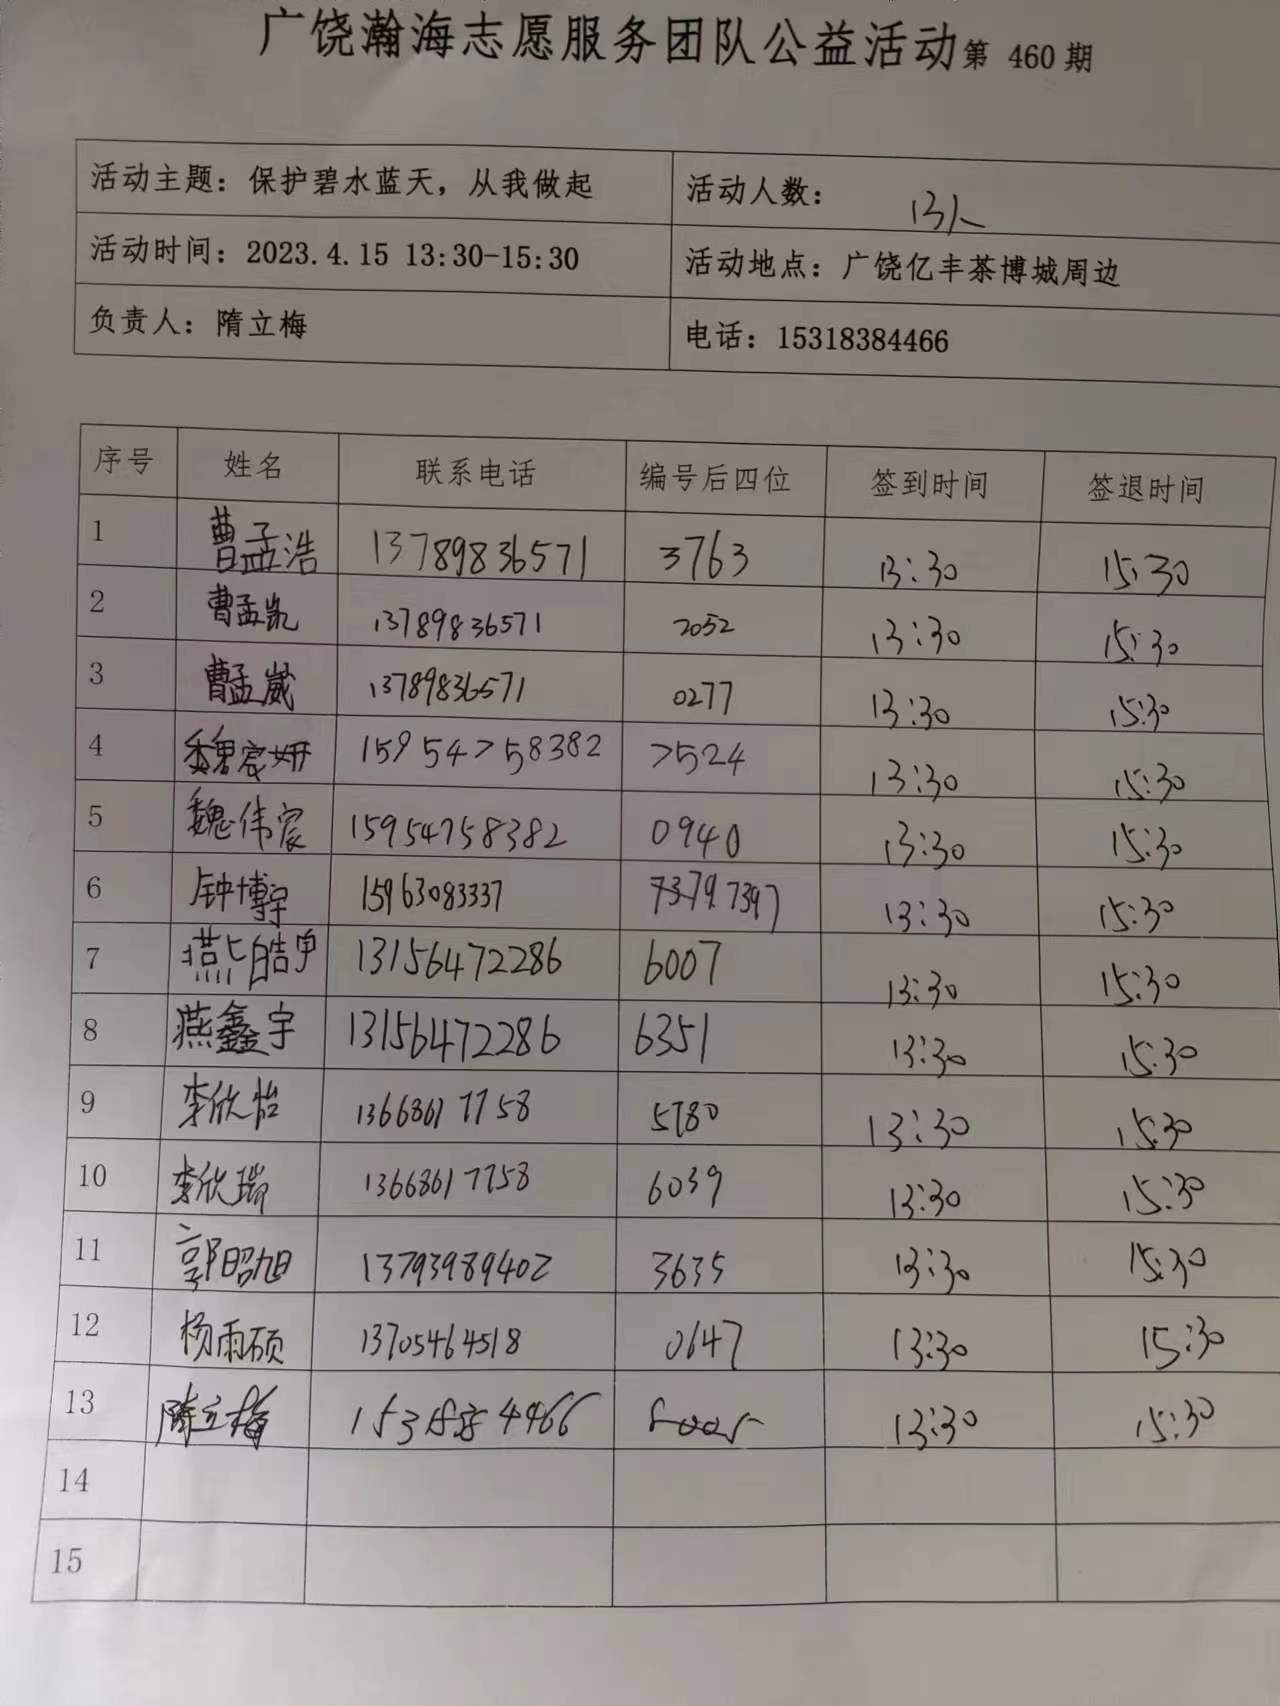 广饶瀚海志愿服务团队公益活动第 460 期
活动主题：保护碧水蓝天，从我做起 活动人数： 13人
活动时间：2023.4.15 13:30-15:30 活动地点：广饶亿丰茶博城周边
负责人：隋立梅 电话：15318384466
序号 姓名 联系电话 编号后四位 签到时间 签退时间
1 曹孟浩 13789836571 3763 13:30 15:30
2 曹孟凯 13789836571 2052 13:30 15:30
3 曹孟崴 13789836571 0277 13:30 15:30
4 魏宸妍 15954758382 7524 13:30 15:30
5 魏伟宸 15954758382 0940 13:30 15:30
6 钟博宇 15963083337 7397 13:30 15:30
7 燕皓宇 13156472286 6007 13:30 15:30
8 燕鑫宇 13156472286 6351 13:30 15:30
9 李欣怡 13668617758 5780 13:30 15:30
10 李欣瑞 13668617758 6039 13:30 15:30
11 郭昭旭 13793989402 3635 13:30 15:30
12 杨雨硕 13705464518 0647 13:30 15:30
13 隋立梅 13:30 15:30
14
15